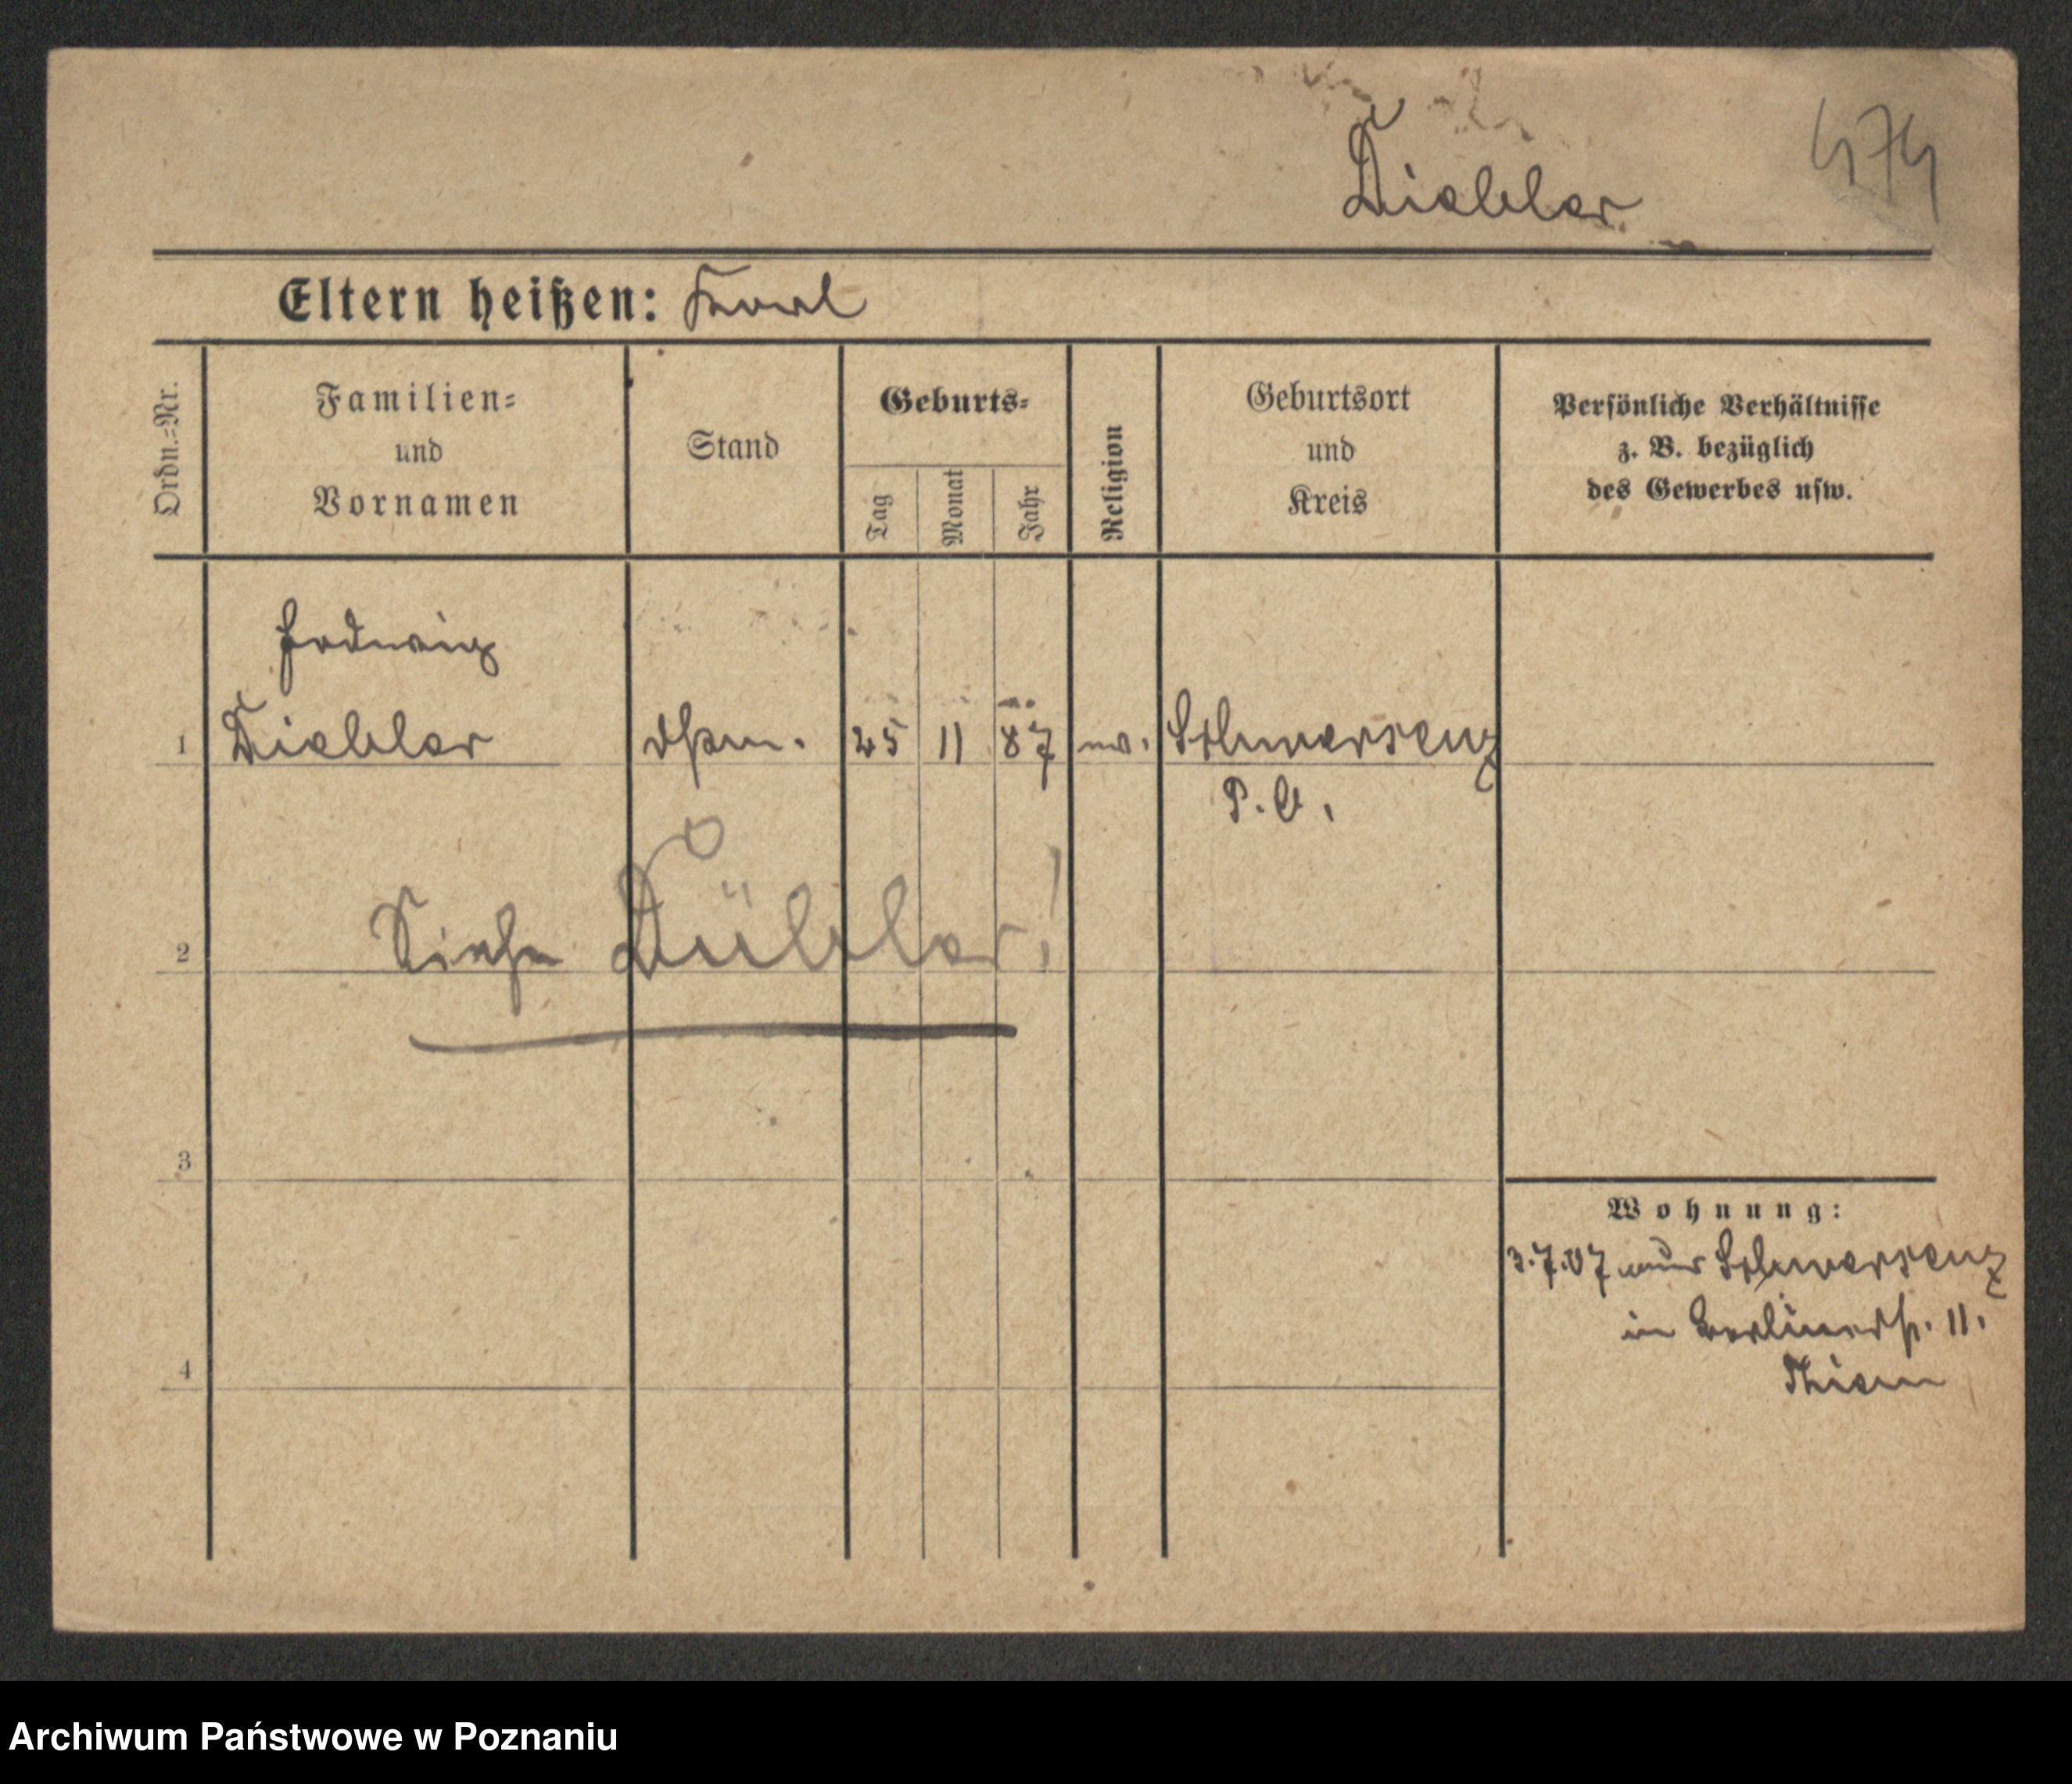 474
Diebler
Eltern heißen: Karl
Ordn.=Nr.
Familien=
und
Vornamen
Stand
Geburts=
Tag
Monat
Jahr
Religion
Geburtsort
und
Kreis
Persönliche Verhältnisse
z. B. bezüglich
des Gewerbes usw.
Hedwig
1 Diebler 25 11 87 ev. Schwersenz
P. O.
2 Siehe Dübler!
3
4
Wohnung:
3.7.07 aus Schwersenz
in Berlinerstr. 11.
Thiem
Archiwum Państwowe w Poznaniu